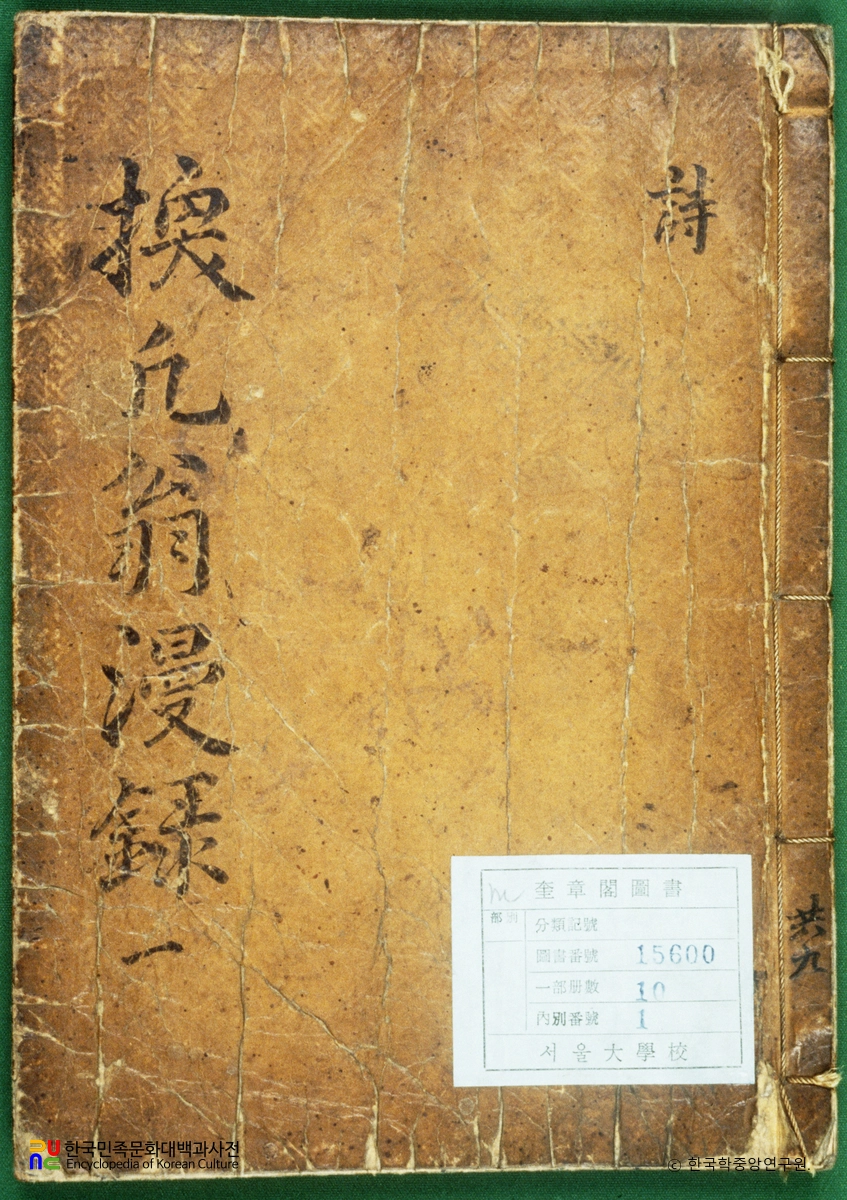 詩
換凡翁漫錄 一
共九
奎章閣圖書
部別
分類記號
圖書番號 15600
一部册數 10
內別番號 1
서울大學校
한국민족문화대백과사전
Encyclopedia of Korean Culture
© 한국학중앙연구원